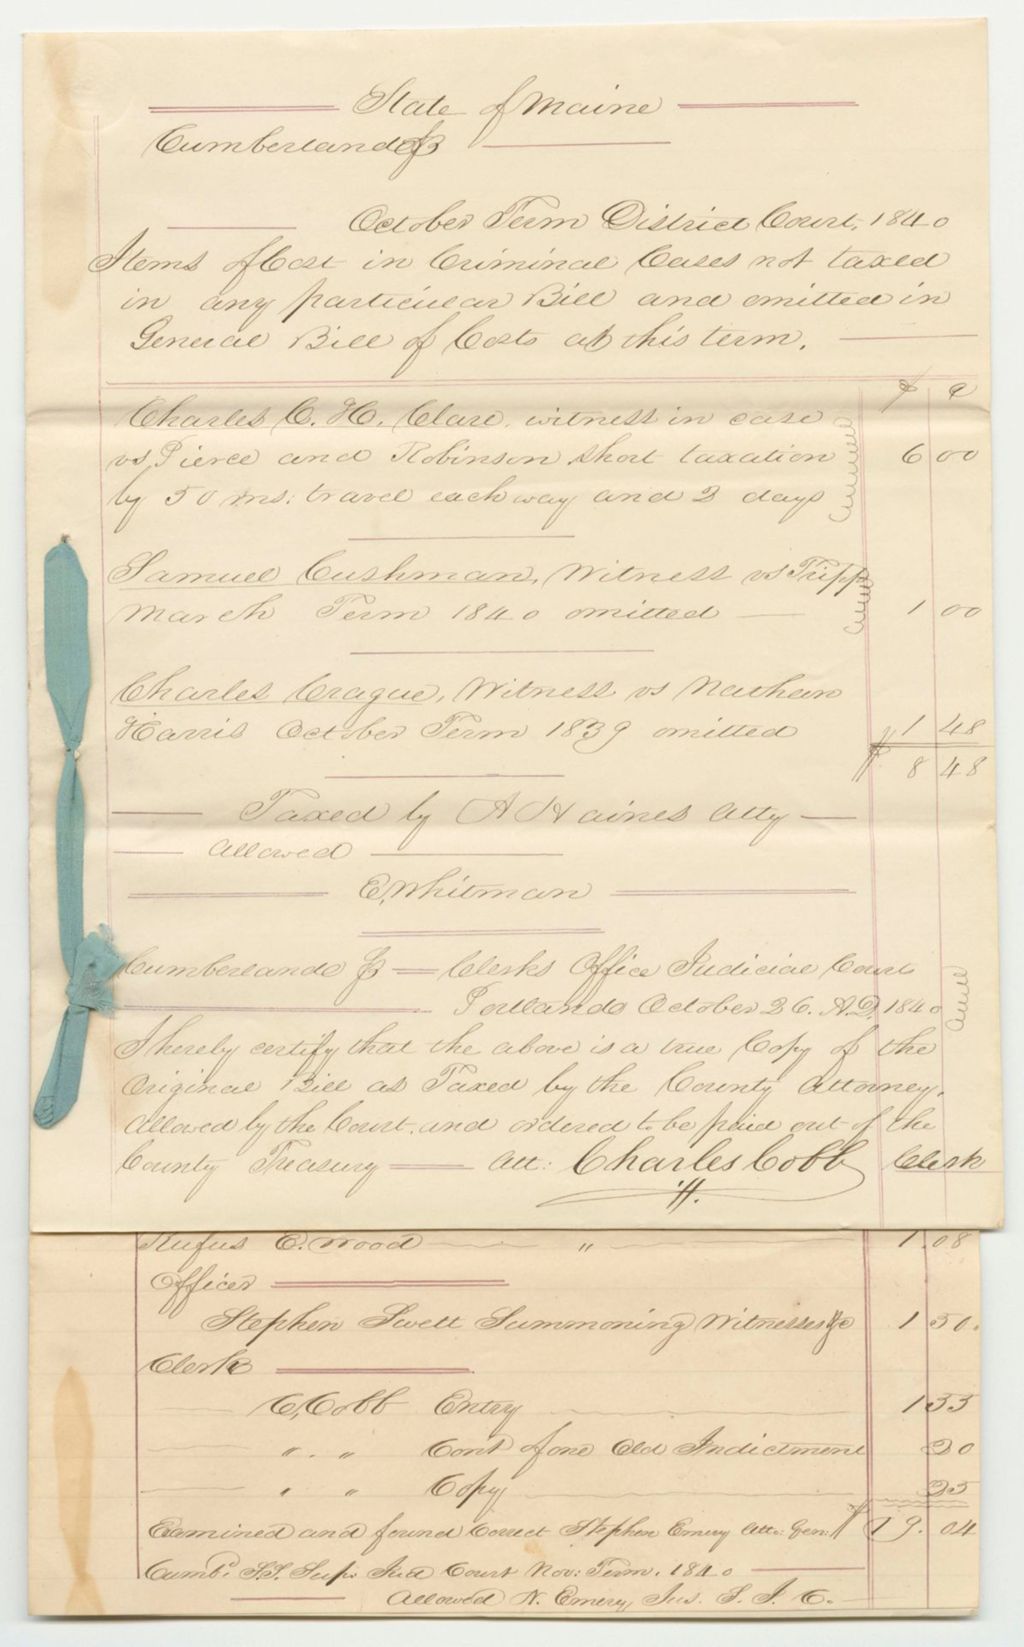 State of Maine
Cumberland Ss
October Term District Court, 1840
Items of Cost in Criminal Cases not taxed
in any particular Bill and omitted in
General Bill of Costs at this term.
$ c
Charles C. H. Clare, witness in case
vs Pierce and Robinson short taxation 6 00
by 50 ms: travel each way and 2 days
Samuel Cushman, Witness vs Tripp
March Term 1840 omitted 1 00
Charles Crague, Witness vs Nathan
Harris October Term 1839 omitted 1 48
$ 8 48
Taxed by A Haines Atty
Allowed
E. Whitman
Cumberland Ss Clerks Office Judicial Courts
Portland October 26. A.D. 1840
I hereby certify that the above is a true Copy of the
Original Bill as Taxed by the County Attorney,
allowed by the Court, and ordered to be paid out of the
County Treasury Att: Charles Cobb Clerk
Rufus E. Wood " 1.08
Officer
Stephen Swett Summoning Witnesses &c 1 50.
Clerk
C, Cobb Entry 1 33
" " Cont of one Old Indictment 20
" " Copy 25
Examined and found Correct Stephen Emery Atto: Gen: $ 19.04
Cumbd. S.S. Sup: Jud Court Nov: Term, 1840
Allowed N. Emery, Jus. S. J. C.